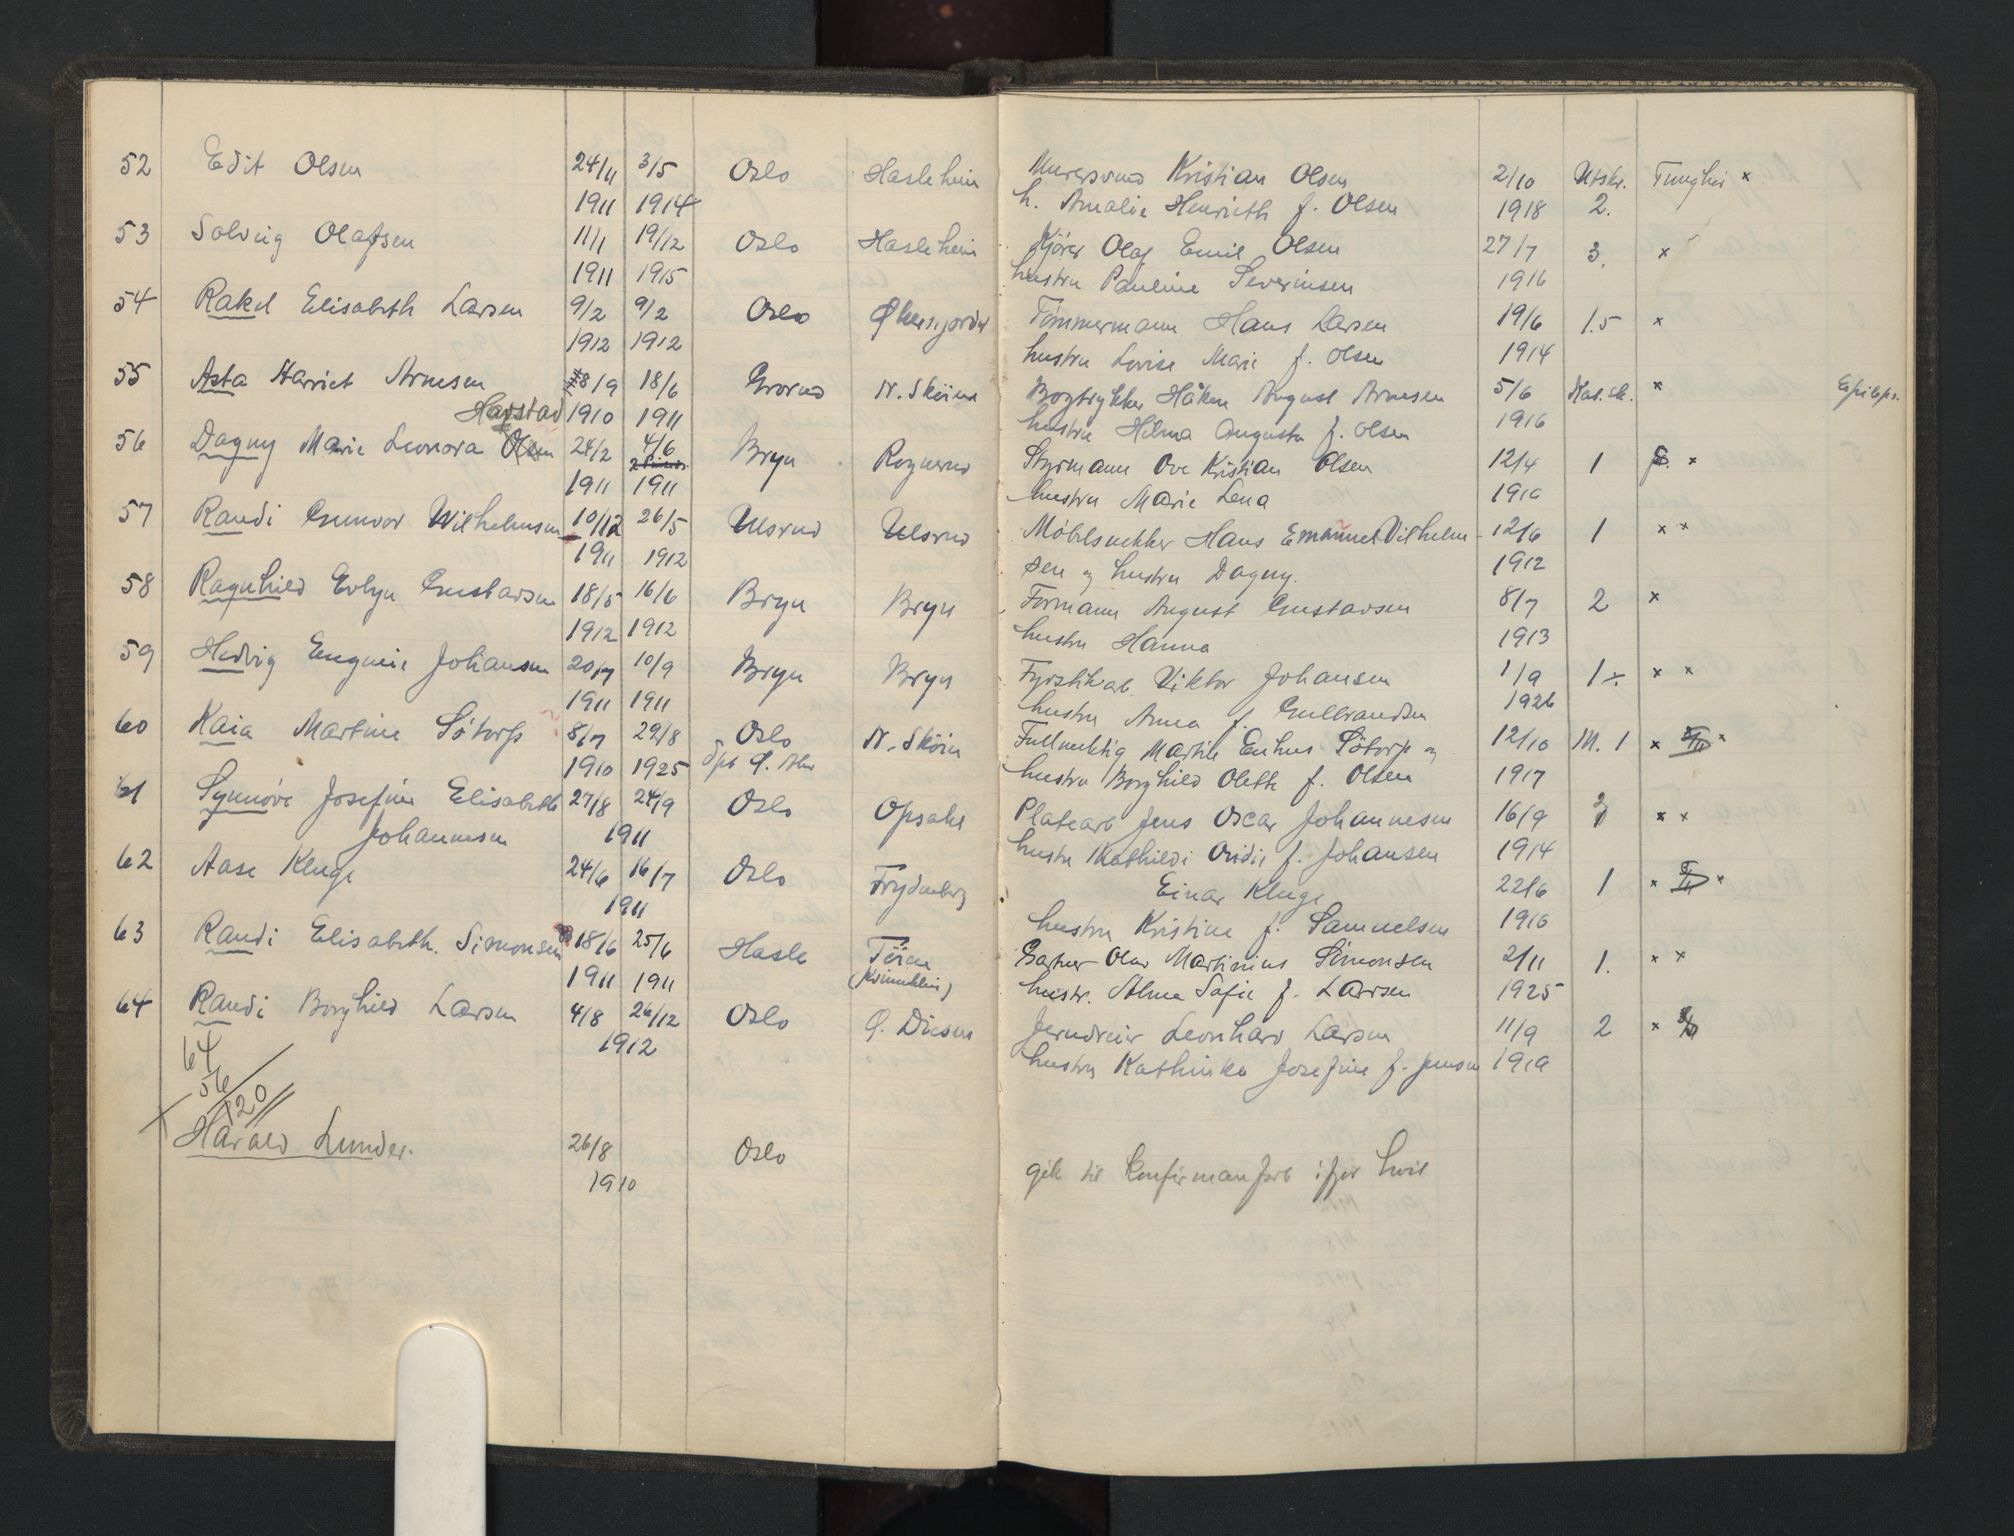 52 Edit Olsen 24/11 3/5 Oslo Hasleheim Kristian Olsen 2/10 Utskr. Tunghør x
1911 1914 h. Amalie Henriette f. Olsen 1918 2.
53 Solveig Olafsen 11/1 19/12 Oslo Hasleheim Kjører Olaf Emil Olsen 27/7 3. x
1911 1915 hustru Pauline Severinsen 1916
54 Rakel Elisabeth Larsen 9/2 9/2 Oslo Tømmermann Hans Larsen 19/6 1.5 x
1912 1912 hustru Lovise Marie f. Olsen 1914
55 Asta Harriet Arnesen 8/9 18/6 Grorud N. Sköien Boktrykker Håkon August Arnesen 5/6 x
Harstad 1910 1911 hustru Hilma Augusta f. Olsen 1916
56 Dagny Marie Leonora Olsen 24/2 4/6 Bryn Rognerud Styrmann Ove Kristian Olsen 12/4 1 x
1911 1911 hustru Marie Lena 1916
57 Randi Gunvor Wilhelmsen 10/12 26/5 Ulsrud Ulsrud Möbelsnekker Hans Emanuel Vilhelm- 12/6 1 x x
1911 1912 sen og hustru Dagny. 1912
58 Ragnhild Evlyn Gustavsen 18/5 16/6 Bryn Bryn Formann August Gustavsen 8/7 2 x
1912 1912 hustru Hanna 1913
59 Hedvig Eugenie Johansen 20/7 10/9 Bryn Bryn Fyrstikarb. Viktor Johansen 1/9 1 x x
1911 1911 hustru Anna f. Gulbrandsen 1926
60 Kaia Martine Søtorp 8/7 29/8 Oslo N. Skøien Fullmektig Martin Søtorp og 12/10 M. 1 x x
1910 1925 hustru Borghild Olette f. Olsen 1917
61 Synnöve Josefine Elisabeth 27/8 24/9 Oslo Opsahl Platearb Jens Oscar Johannesen 16/9 x x
Johannesen 1911 hustru Mathilde f. Johansen 1914
62 Aase Kluge 24/6 16/7 Oslo Frydenberg Einar Kluge 22/6 1 x x
1911 hustru Kristine f. Samuelsen 1916
63 Randi Elisabeth Simonsen 18/6 25/6 Hasle Töien Gartner Olav Martinius Simonsen 2/11 1. x x
1911 1911 (Kvinneklin) hustr. Alma Sofie f. Larsen 1925
64 Randi Borghild Larsen 4/8 26/12 Oslo Ø. Disen Jerndreier Leonhard Larsen 11/9 2 x
1912 hustru Kathinka Josefine f. Jensen 1919
64
56
120
Harald Lunder. 26/8 Oslo gikk til konfirmanforb ifjor høst
1910